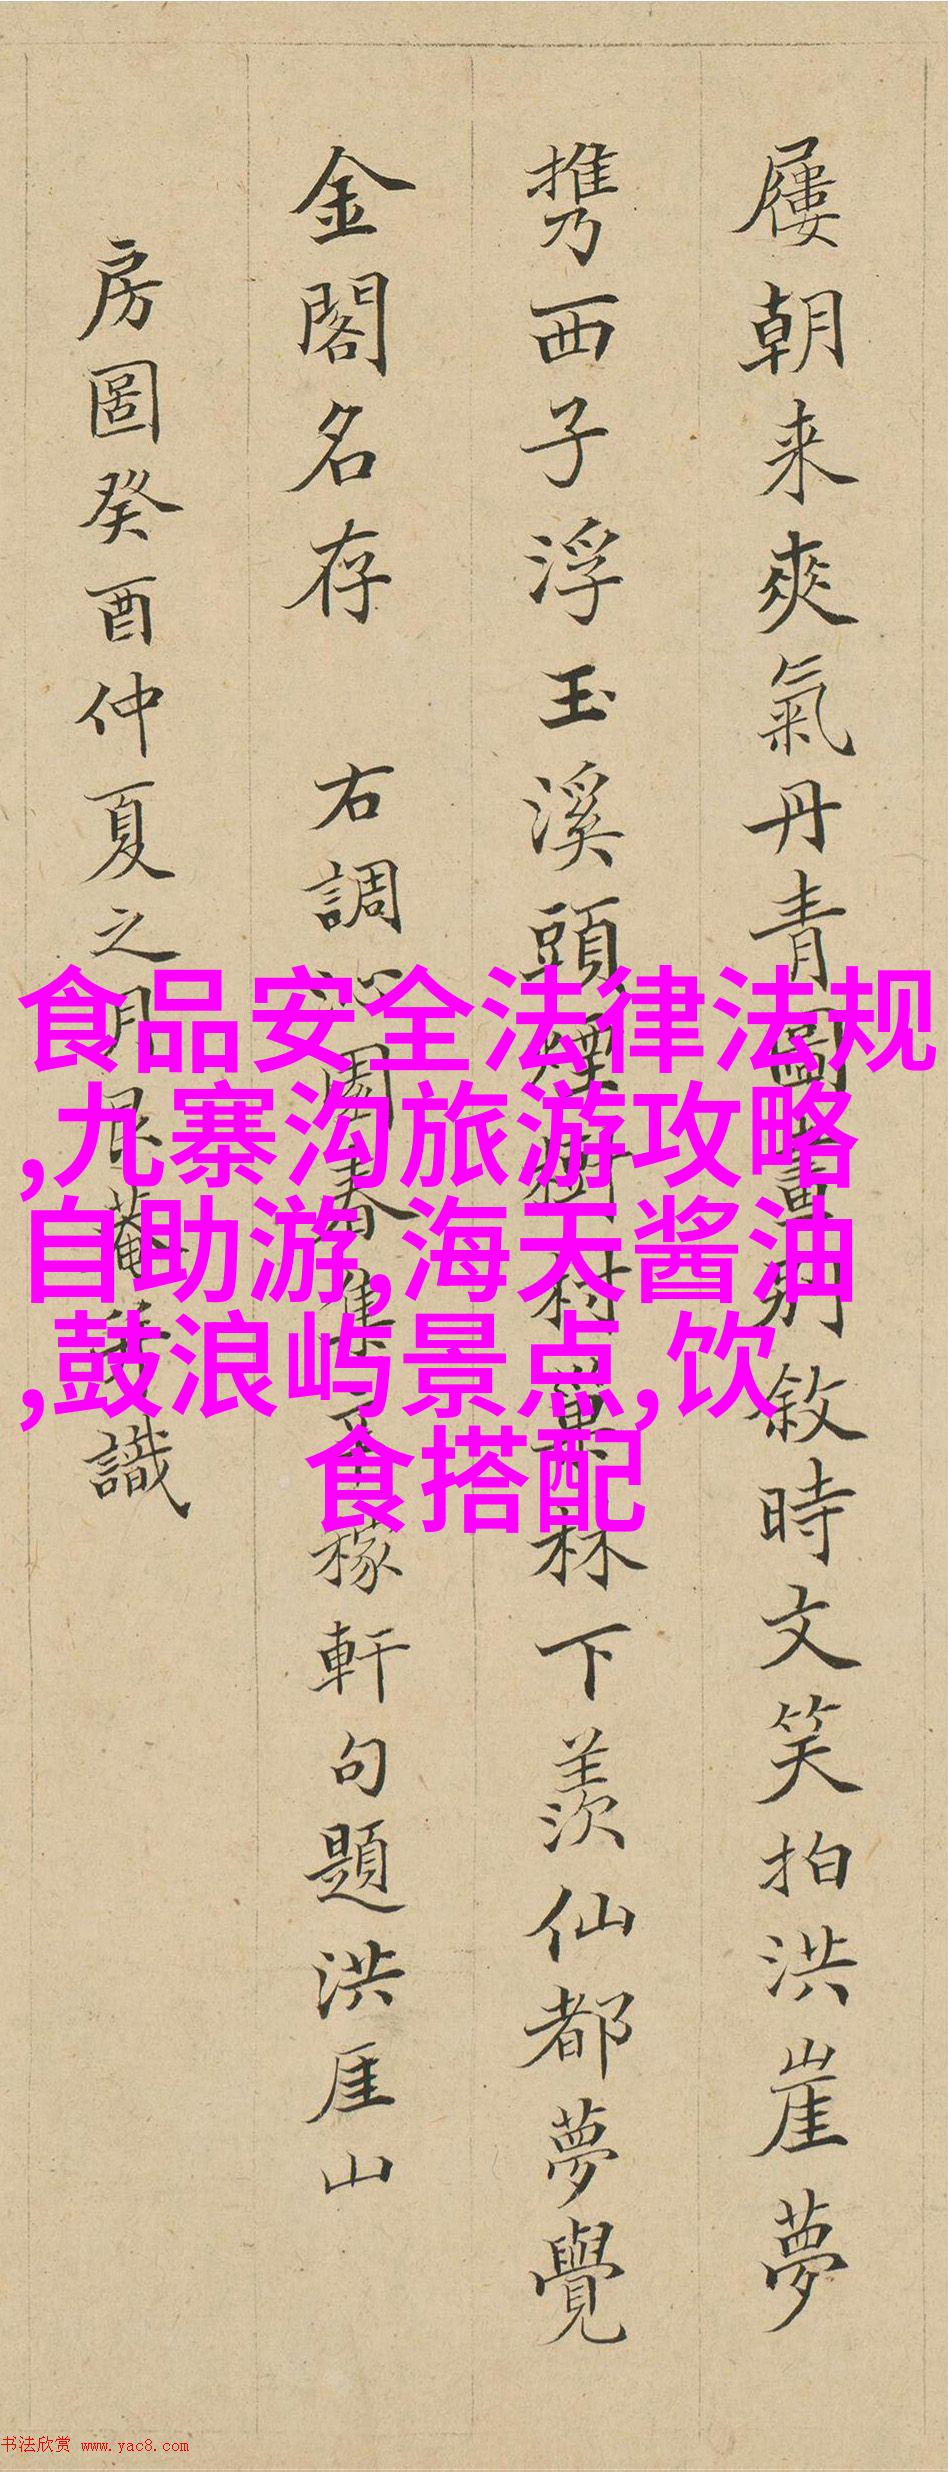 屨朝来爽氣丹青圖畫別敘時文笑拍洪崖夢
携西子浮玉溪頭煙樹村巢林下羨仙都夢覺
金閣名存 右調沁園春集辛稼軒句題洪厓山
房圖癸酉仲夏之月艮菴識
食品安全法律法规
,九寨沟旅游攻略
自助游,海天酱油
,鼓浪屿景点,饮
食搭配
书法欣赏 www.yac8.com